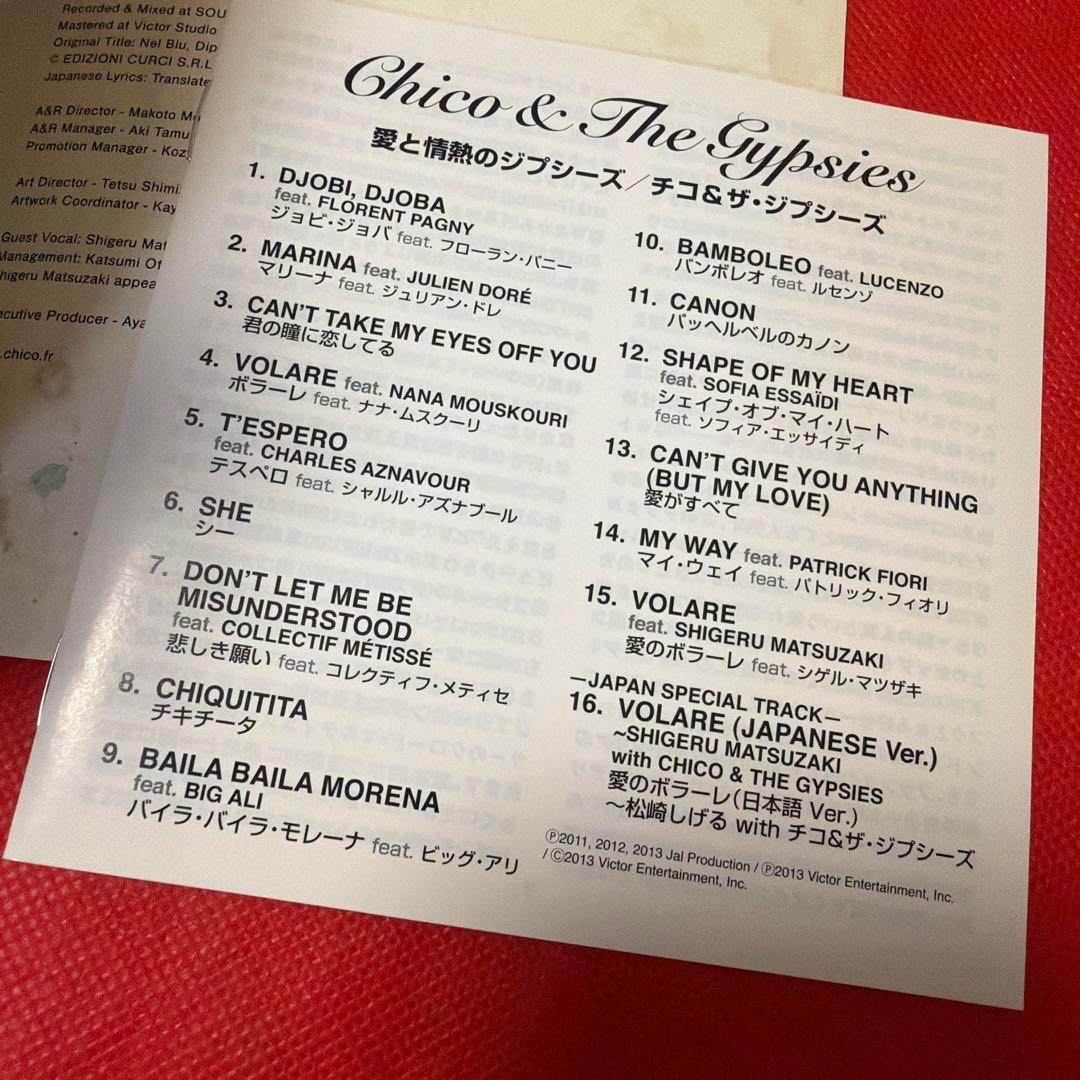 Recorded & Mixed at SOU
Mastered at Victor Studio
Original Title: Nel Blu, Dip
© EDIZIONI CURCI S.R.L
Japanese Lyrics: Translate
A&R Director - Makoto
A&R Manager - Aki Tamu
Promotion Manager - Koz
Art Director - Tetsu Shimi
Artwork Coordinator - Kay
Guest Vocal: Shigeru Mat
Management: Katsumi Ot
higeru Matsuzaki appea
ecutive Producer - Aya
.chico.fr
Chico & The Gypsies
愛と情熱のジプシーズ/チコ&ザ・ジプシーズ
1. DJOBI, DJOBA
feat. FLORENT PAGNY
ジョビ・ジョバ feat. フローラン・パニー
2. MARINA feat. JULIEN DORÉ
マリーナ feat. ジュリアン・ドレ
3. CAN'T TAKE MY EYES OFF YOU
君の瞳に恋してる
4. VOLARE feat. NANA MOUSKOURI
ボラーレ feat. ナナ・ムスクーリ
5. T'ESPERO
feat. CHARLES AZNAVOUR
テスペロ feat. シャルル・アズナブール
6. SHE
シー
7. DON'T LET ME BE
MISUNDERSTOOD
feat. COLLECTIF MÉTISSÉ
悲しき願い feat. コレクティフ・メティセ
8. CHIQUITITA
チキチータ
9. BAILA BAILA MORENA
feat. BIG ALI
バイラ・バイラ・モレーナ feat. ビッグ・アリ
10. BAMBOLEO feat. LUCENZO
バンボレオ feat. ルセンゾ
11. CANON
パッヘルベルのカノン
12. SHAPE OF MY HEART
feat. SOFIA ESSAÏDI
シェイプ・オブ・マイ・ハート
feat. ソフィア・エッサイディ
13. CAN'T GIVE YOU ANYTHING
(BUT MY LOVE)
愛がすべて
14. MY WAY feat. PATRICK FIORI
マイ・ウェイ feat. パトリック・フィオリ
15. VOLARE
feat. SHIGERU MATSUZAKI
愛のボラーレ feat. シゲル・マツザキ
—JAPAN SPECIAL TRACK—
16. VOLARE (JAPANESE Ver.)
~SHIGERU MATSUZAKI
with CHICO & THE GYPSIES
愛のボラーレ(日本語 Ver.)
～松崎しげる with チコ&ザ・ジプシーズ
℗2011, 2012, 2013 Jal Production / ℗2013 Victor Entertainment, Inc.
/ ©2013 Victor Entertainment, Inc.